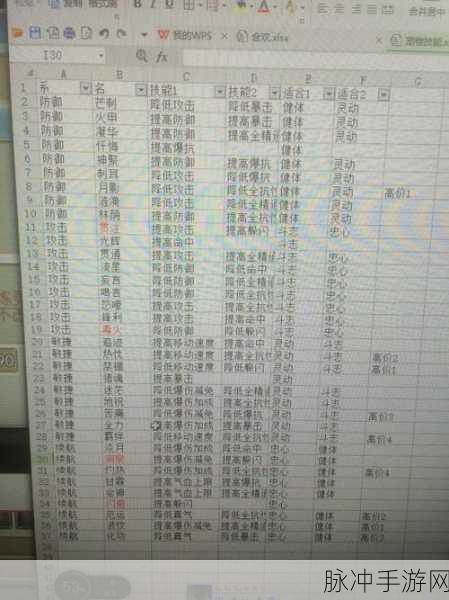 复制 格式刷
B I U
合并居中
我的WPS
合欢.xlsx
宠物技能.x
I30
fx
A B C D E F G H
1 系 名 技能1 技能2 适合1 适合2
2 防御 芒刺 降低攻击 降低暴击 健体 灵动
3 防御 火甲 提高防御 提高暴击 健体 灵动
4 防御 凝华 提高防御 提高全精 健体 灵动
5 防御 忏悔 提高爆抗 健体
6 防御 神聚 提高防御 提高爆抗 健体 灵动
7 防御 刺耳 降低攻击 降低爆抗 健体 灵动
8 防御 月影 降低攻击 降低全抗 健体 灵动 高价1
9 防御 降低攻击 提高全抗 健体 灵动
10 防御 林荫 提高防御 提高全抗 健体 灵动
11 攻击 贯注 提高攻击 提高躲闪 斗志 忠心
12 攻击 光辉 提高命中 斗志
13 攻击 贯通 提高攻击 提高全精 斗志 忠心
14 攻击 凌星 降低防御 降低命中 斗志 忠心
15 攻击 妄言 降低防御 降低全精 斗志 忠心
16 攻击 喝言 降低防御 降低全抗 斗志 忠心
17 攻击 怒嚎 提高攻击 提高全抗 斗志 忠心
18 攻击 锋利 提高攻击 提高命中 斗志 忠心
19 攻击 毒火 降低防御 降低躲闪 斗志 忠心
20 敏捷 追迹 提高移动速度 提高命中 灵动 斗志
21 敏捷 热忱 提高移动速度 提高全抗 灵动 斗志 高价2
22 敏捷 禁锢 降低移动速度 降低躲闪 灵动 斗志 高价1
23 敏捷 猎魂 提高暴击 灵动
24 敏捷 迷茫 降低爆伤减免 降低全精 灵动 斗志
25 敏捷 地锐 提高爆伤加成 提高全精 灵动 斗志
26 敏捷 苦痛 降低爆伤减免 降低爆抗 灵动 斗志 高价3
27 敏捷 全力 提高爆伤加成 提高暴击 灵动 斗志
28 敏捷 羁绊 降低移动速度 降低全抗 灵动 斗志 高价4
29 续航 降低爆伤加成 降低命中 忠心 健体
30 续航 提高爆伤减免 提高躲闪 忠心 健体
31 续航 灼热 降低爆伤加成 降低全抗 忠心 健体 高价4
32 续航 甘霖 提高气血上限 提高全抗 忠心 健体
33 续航 提高气血上限 提高全精 忠心 健体
34 续航 闪避 提高躲闪 忠心
35 续航 厄运 降低真气 降低全抗 忠心 健体 高价2
36 续航 波纹 提高爆伤减免 提高全抗 忠心 健体
37 续航 化功 降低真气 降低暴击 忠心 健体
脉冲手游网